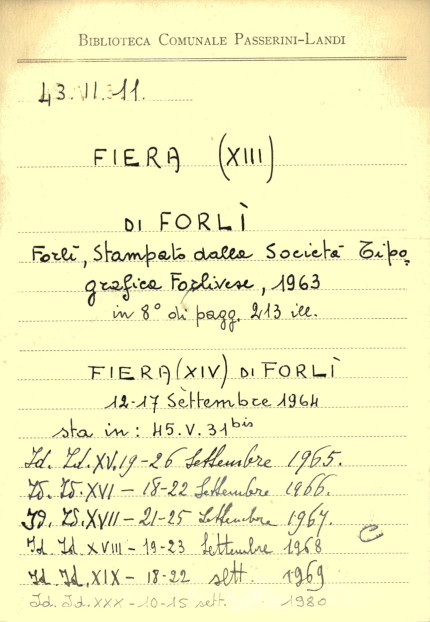 BIBLIOTECA COMUNALE PASSERINI-LANDI
43.II.11.
FIERA (XIII)
DI FORLÌ
Forlì, Stampato dalla Società Tipo
grafica Forlivese, 1963
in 8° di pagg. 213 ill.
FIERA (XIV) DI FORLÌ
12-17 Settembre 1964
sta in: 45.V.31 bis
Id. Id. XV. 19-26 Settembre 1965.
Id. Id. XVI - 18-22 Settembre 1966.
Id. Id. XVII - 21-25 Settembre 1967.
Id Id XVIII - 19-23 Settembre 1968
Id Id, XIX - 18-22 sett. 1969
Id. Id. XXX - 10-15 sett. 1980